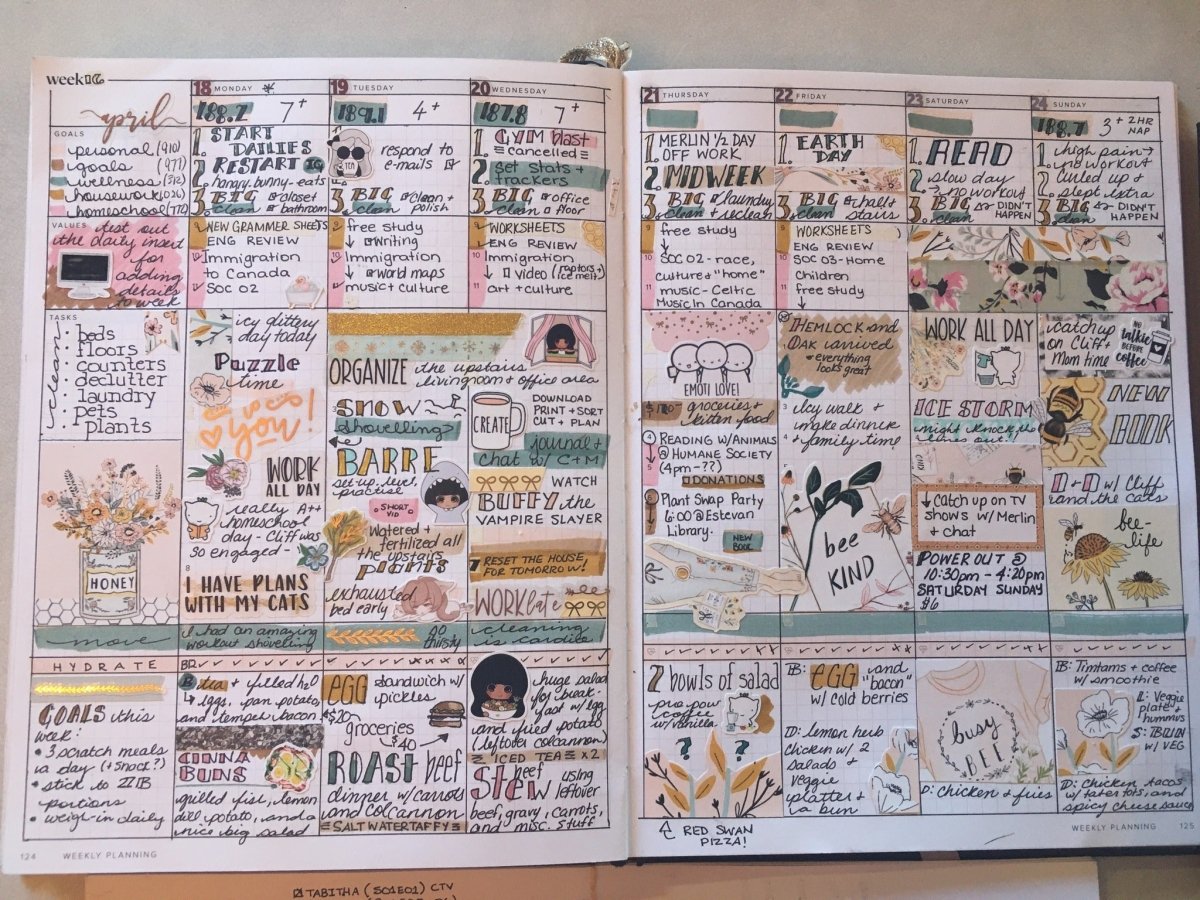 week 16
april
GOALS
personal (910)
goals (977)
wellness (512)
housework (026)
homeschool (772)
VALUES
test out
the daily insert
for
adding
details
to week
TASKS
clean!
beds
floors
counters
declutter
laundry
pets
plants
HONEY
move
HYDRATE
GOALS this
week:
• 3 scratch meals
a day (+ snack?)
• stick to
portions
• weigh-in daily
124 WEEKLY PLANNING
18 MONDAY
188.2 7+
1. START
DAILIES
RESTART IG
2. hangry bunny-eats
3. BIG closet
clean bathroom
9 NEW GRAMMER SHEETS
ENG REVIEW
10 Immigration
to Canada
11 SOC 02
icy glittery
day today
Puzzle
time
you!
WORK
ALL DAY
really A++
homeschool
day - Cliff was
so engaged -
8
I HAVE PLANS
WITH MY CATS
I had an amazing
workout shovelling
B tea + filled h2o
↳ eggs, pan potato,
and tempeh bacon
CINNA
BUNS
grilled fish, lemon
dill potato, and a
nice big salad
19 TUESDAY
189.1 4+
1.
TEA
respond to
e-mails
3. BIG clean +
clean polish
9 free study
↓ writing
10 Immigration
↓ world maps
11 music + culture
ORGANIZE the upstairs
livingroom + office area
3 SNOW
shovelling
BARRE
set up, level,
practise
SHORT
VID
Watered +
fertilized all
the upstairs
plants
exhausted
bed early
so
thirsty
EGG sandwich w/
pickles
$20
groceries
$40
ROAST beef
dinner w/ carrots
and colcannon
SALT WATER TAFFY
20 WEDNESDAY
187.8 7+
1. GYM blast
cancelled
2. set stats +
trackers
3. BIG office
clean floor
9 WORKSHEETS
ENG REVIEW
10 Immigration
↓ video (raptors + ice melt)
11 art + culture
CREATE
DOWNLOAD
PRINT + SORT
CUT + PLAN
journal +
chat w/ C+M
WATCH
BUFFY the
VAMPIRE SLAYER
7 RESET THE HOUSE,
FOR TOMORROW!
WORK late
cleaning
is cardio
huge salad
for break-
fast w/ egg
and fried potato
(leftover colcannon)
ICED TEA x2
beef
STEW using
leftover
beef, gravy, carrots,
and misc. stuff
21 THURSDAY
1. MERLIN 1/2 DAY
OFF WORK
2. MIDWEEK
3. BIG laundry
clean + reclean
9 free study
↓
10 SOC 02 - race,
culture + "home"
11 music - Celtic
Music In Canada
EMOTI LOVE!
groceries +
kitten food
4 READING W/ ANIMALS
@ HUMANE SOCIETY
5 (4pm - ??)
DONATIONS
6 Plant Swap Party
6:00 @ Estevan
Library.
NEW
BOOK
2 bowls of salad
coffee
w/ vanilla
? ?
RED SWAN
PIZZA!
22 FRIDAY
1. EARTH
DAY
3. BIG hall +
clean stairs
9 WORKSHEETS
ENG REVIEW
10 SOC 03 - Home
Children
11 free study
↓
HEMLOCK and
OAK arrived
everything
looks great
3 Icy walk +
make dinner
+ family time
bee
KIND
B: EGG and
"bacon"
w/ cold berries
D: lemon herb
chicken w/ 2
salads +
veggie
platter +
a bun
23 SATURDAY
1. READ
2. slow day
→ no workout
3. BIG DIDN'T
clean HAPPEN
WORK ALL DAY
ICE STORM
might knock the
out!
↓ catch up on TV
shows w/ Merlin
+ chat
POWER OUT @
10:30pm - 4:20pm
SATURDAY SUNDAY
#6
busy
BEE
D: chicken + fries
24 SUNDAY
188.7 3+ 2HR
NAP
1. high pain →
no workout
2. curled up +
slept extra
3. BIG DIDN'T
clean HAPPEN
catch up
on Cliff +
Mom time
NO
talkie
BEFORE
coffee
NEW
BOOK
D + D w/ Cliff
and the cats
bee-
life
B: Timtams + coffee
w/ smoothie
L: Veggie
plate +
hummus
S:
w/ VEG
D: chicken tacos
w/ tater tots, and
spicy cheese sauce
WEEKLY PLANNING 125
TABITHA (S01E01) CTV